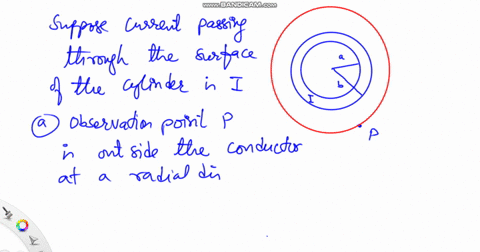 www.BANDICAM.com
Suppose current passing
through the surface
of the cylinder is I
(a) Observation point P
is outside the conductor
at a radial dis
a
b
I
P